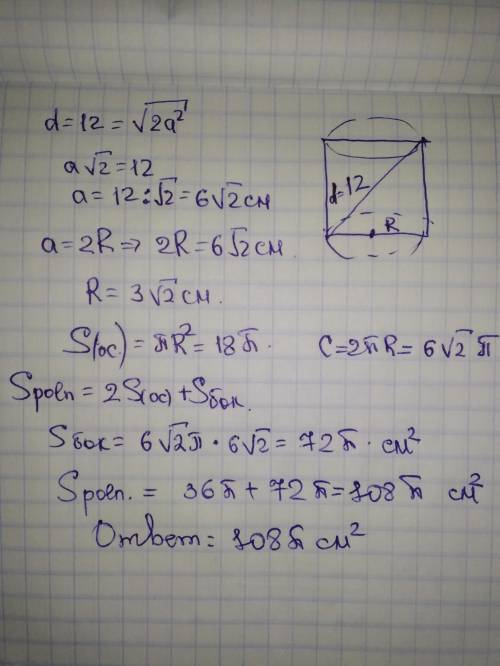 d=12=√2a²
a√2=12
a=12:√2=6√2см
d=12
R
a=2R⇒ 2R=6√2см.
R=3√2см.
S(ос.)=πR²=18π. C=2πR=6√2 π
Sполn=2S(ос)+Sбок.
Sбок=6√2π·6√2=72π·см²
Sполn.= 36π+72π=108π см²
Ответ=108π см²